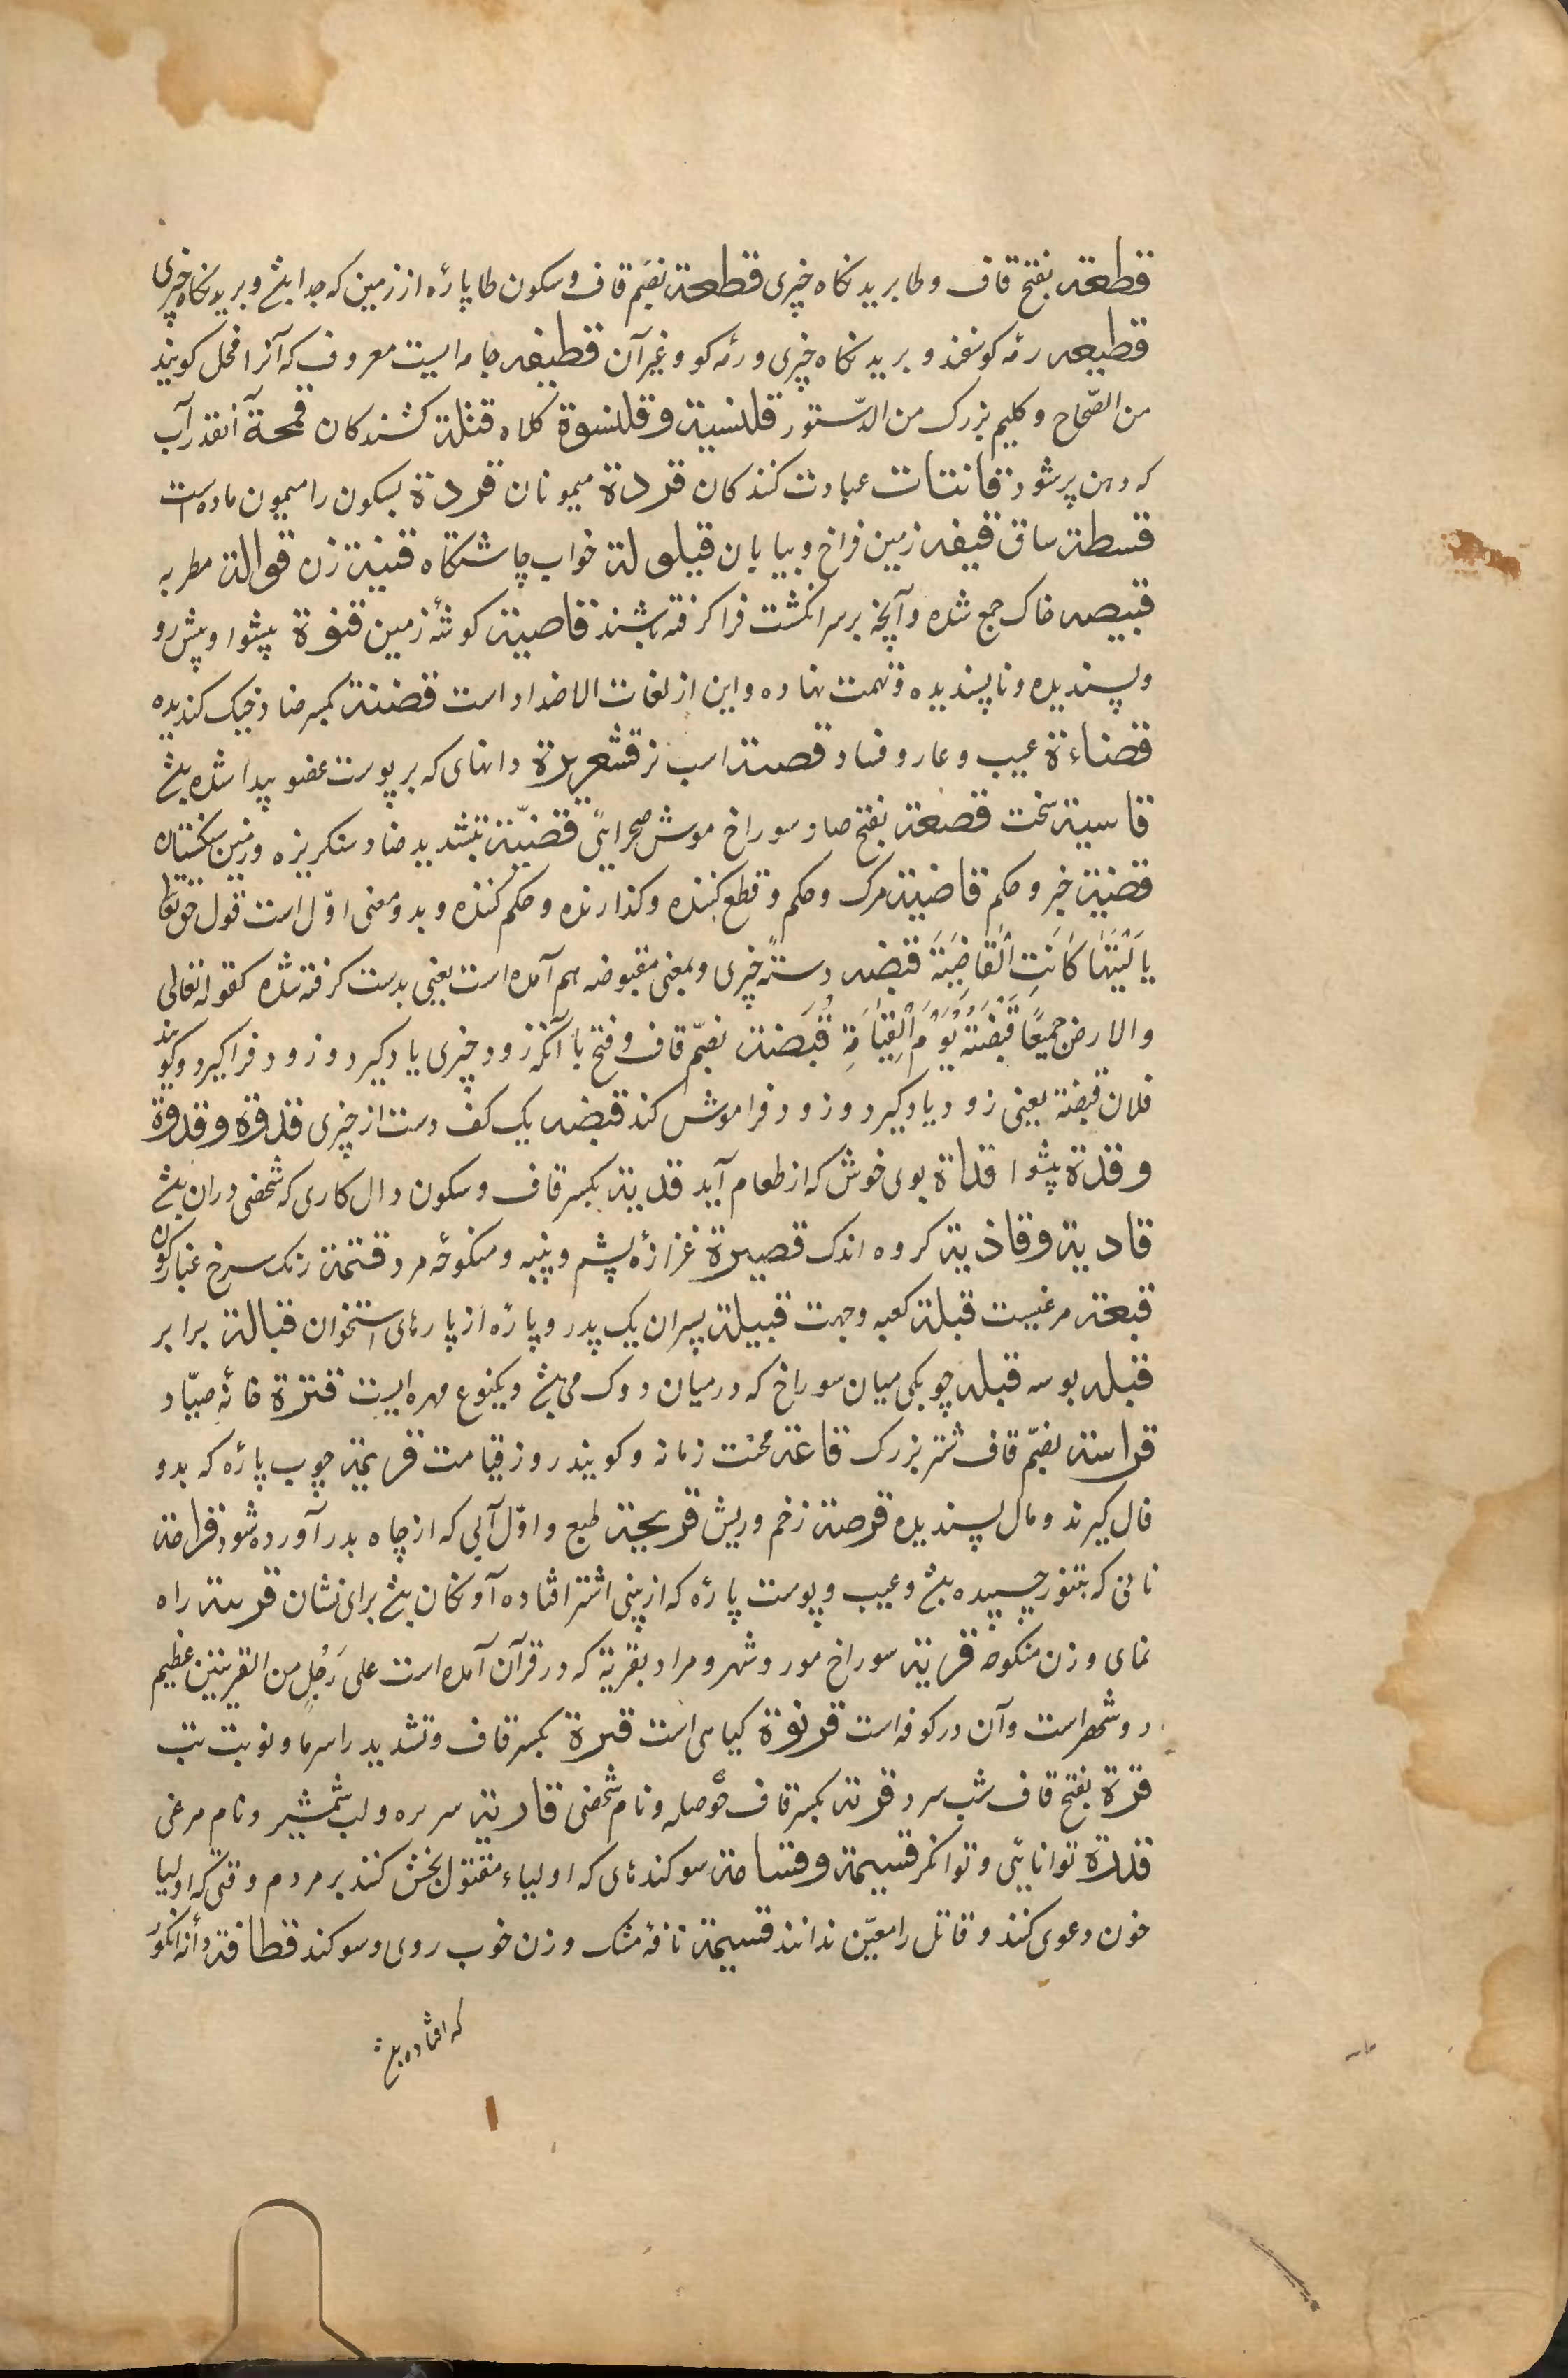 قطعة بفتح قاف وطا بریدنکاه چیزی قطعة بضم قاف وسکون طا پارۀ از زمین که جدا باشد و بریدنکاه چیزی
قطیعه رمۀ کوسفند و بریدنکاه چیزی و رمۀ کو و غیر آن قطیفه جامه ایست معروف که آنرا مخمل کویند
من الصّحاح و کلیم بزرک من الدّستور قلنسیة وقلنسوة کلاه قتلة کشندکان قمحة آنقدر آب
که دهن پر شود قانتات عبادت کنندکان قردة میمونان قردة بسکون را میمون ماده است
قسطة ساق قیفه زمین فراخ و بیابان قیلولة خواب چاشتکاه قنیة زن قوالة مطربه
قبیصه خاک جمع شده و آنچه بر سر انکشت فرا کرفته باشند قاصیة کوشۀ زمین قفوة پیشوا و پیش رو
و پسندیده و ناپسندیده و تهمت نهاده و این از لغات الاضداد است قضئة بکسر ضاد خیک کندیده
قضاءة عیب و عار و فساد قصة اسب نر قشعریرة دانهای که بر پوست عضو پیدا شده باشد
قاسیة سخت قصعة بفتح صاد سوراخ موش صحرایی قضّیة بتشدید ضاد سنکریزه و زمین سنکستان
قضیة خبر و حکم قاضیة مرک و حکم و قطع کننده و کذارنده و حکم کننده و بدو معنی اوّل است قول حق تعالی
یا لَیْتَهَا کَانَتِ الْقَاضِیَةَ قبضه دستۀ چیزی و بمعنی مقبوضه هم آمده است یعنی بدست کرفته شده کقوله تعالی
والارض جمیعًا قَبْضَتُهُ یَوْمَ الْقِیَامَةِ قُبَضة بضمّ قاف و فتح با آنکه زود چیزی یاد کیرد و زود فرا کیرد و کویند
فلان قبضة یعنی زود یاد کیرد و زود فراموش کند قبضه یک کف دست از چیزی قدوة وقدوة
وقدة پیشوا قداة بوی خوش که از طعام آید قدیة بکسر قاف و سکون دال کاری که شخصی دران باشد
قادیة وقاذیة کروه اندک قصیرة غزازۀ پشم و پنبه و منکوحۀ مرد قتمة رنک سرخ غبار کون
قبعة مرغیست قبلة کعبه و جهت قبیلة پسران یک پدر و پارۀ از پارهای استخوان قبالة برابر
قبله بوسه قبله چوبکی میان سوراخ که در میان دوک می باشد و یکنوع مهره ایست قترة خانۀ صیّاد
قراسة بضمّ قاف شتر بزرک قاعة محنت زمانه و کویند روز قیامت قریمة چوب پارۀ که بدو
فال کیرند و مال پسندیده قرصة زخم و ریش قریحة طبع و اوّل آبی که از چاه بدر آورده شود قرامة
نانی که بتنور چسپیده باشد و عیب و پوست پارۀ که از بینی اشتر افتاده آونکان باشد برای نشان قرینة راه
نمای و زن منکوحه قریة سوراخ مور و شهر و مراد بقریة که در قرآن آمده است علی رَجُلٍ من القریتین عظیم
دو شهر است و آن در کوفه است قرنوة کیاهی است قرة بکسر قاف و تشدید را سرما و نوبت تب
قرة بفتح قاف شب سرد قریة بکسر قاف حوصله و نام شخصی قاریة سر نیزه و لب شمشیر و نام مرغی
قدرة توانایی و توانکر قسیمة وقسامة سوکندهای که اولیاء مقتول بخش کنند بر مردم وقتی که اولیا
خون دعوی کنند و قاتل را معیّن ندانند قسیمة نافۀ مشک و زن خوب روی و سوکند قطافة دانۀ انکور
که افتاده باشد